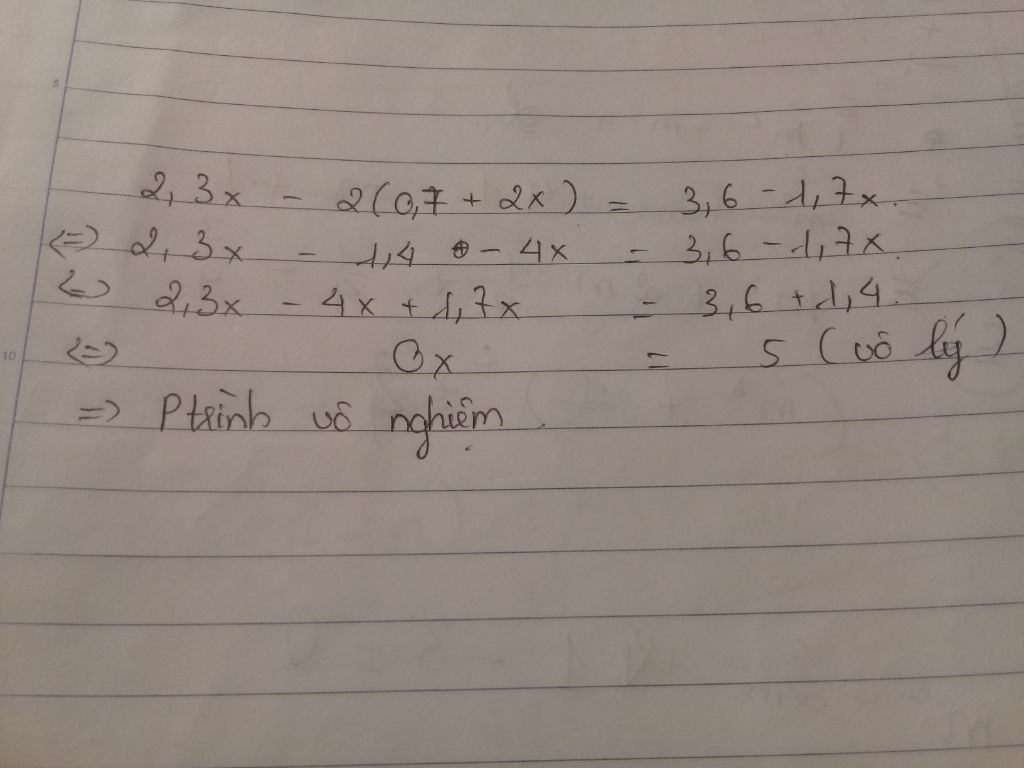 5
2,3x - 2(0,7 + 2x) = 3,6 - 1,7x.
<=> 2,3x - 1,4 - 4x = 3,6 - 1,7x.
<=> 2,3x - 4x + 1,7x = 3,6 + 1,4.
10 <=> 0x = 5 (vô lý)
=> Ptrình vô nghiệm.